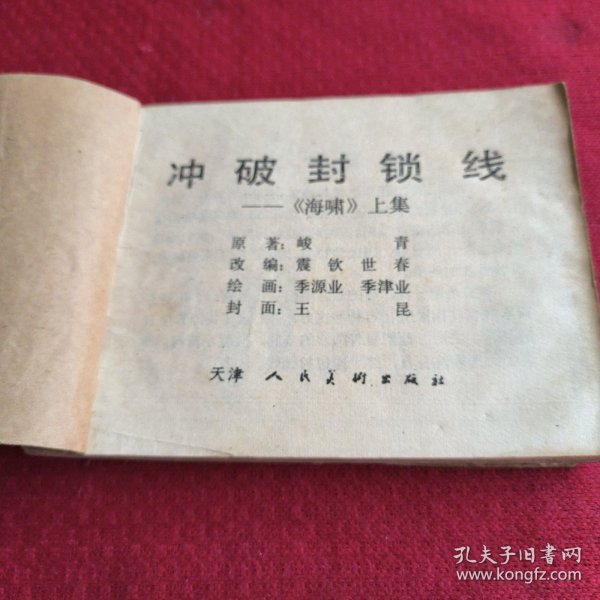 冲破封锁线
——《海啸》上集
原著：峻青
改编：震钦 世春
绘画：季源业 季津业
封面：王昆
天津人民美術出版社
孔夫子旧书网
www.kongfz.com